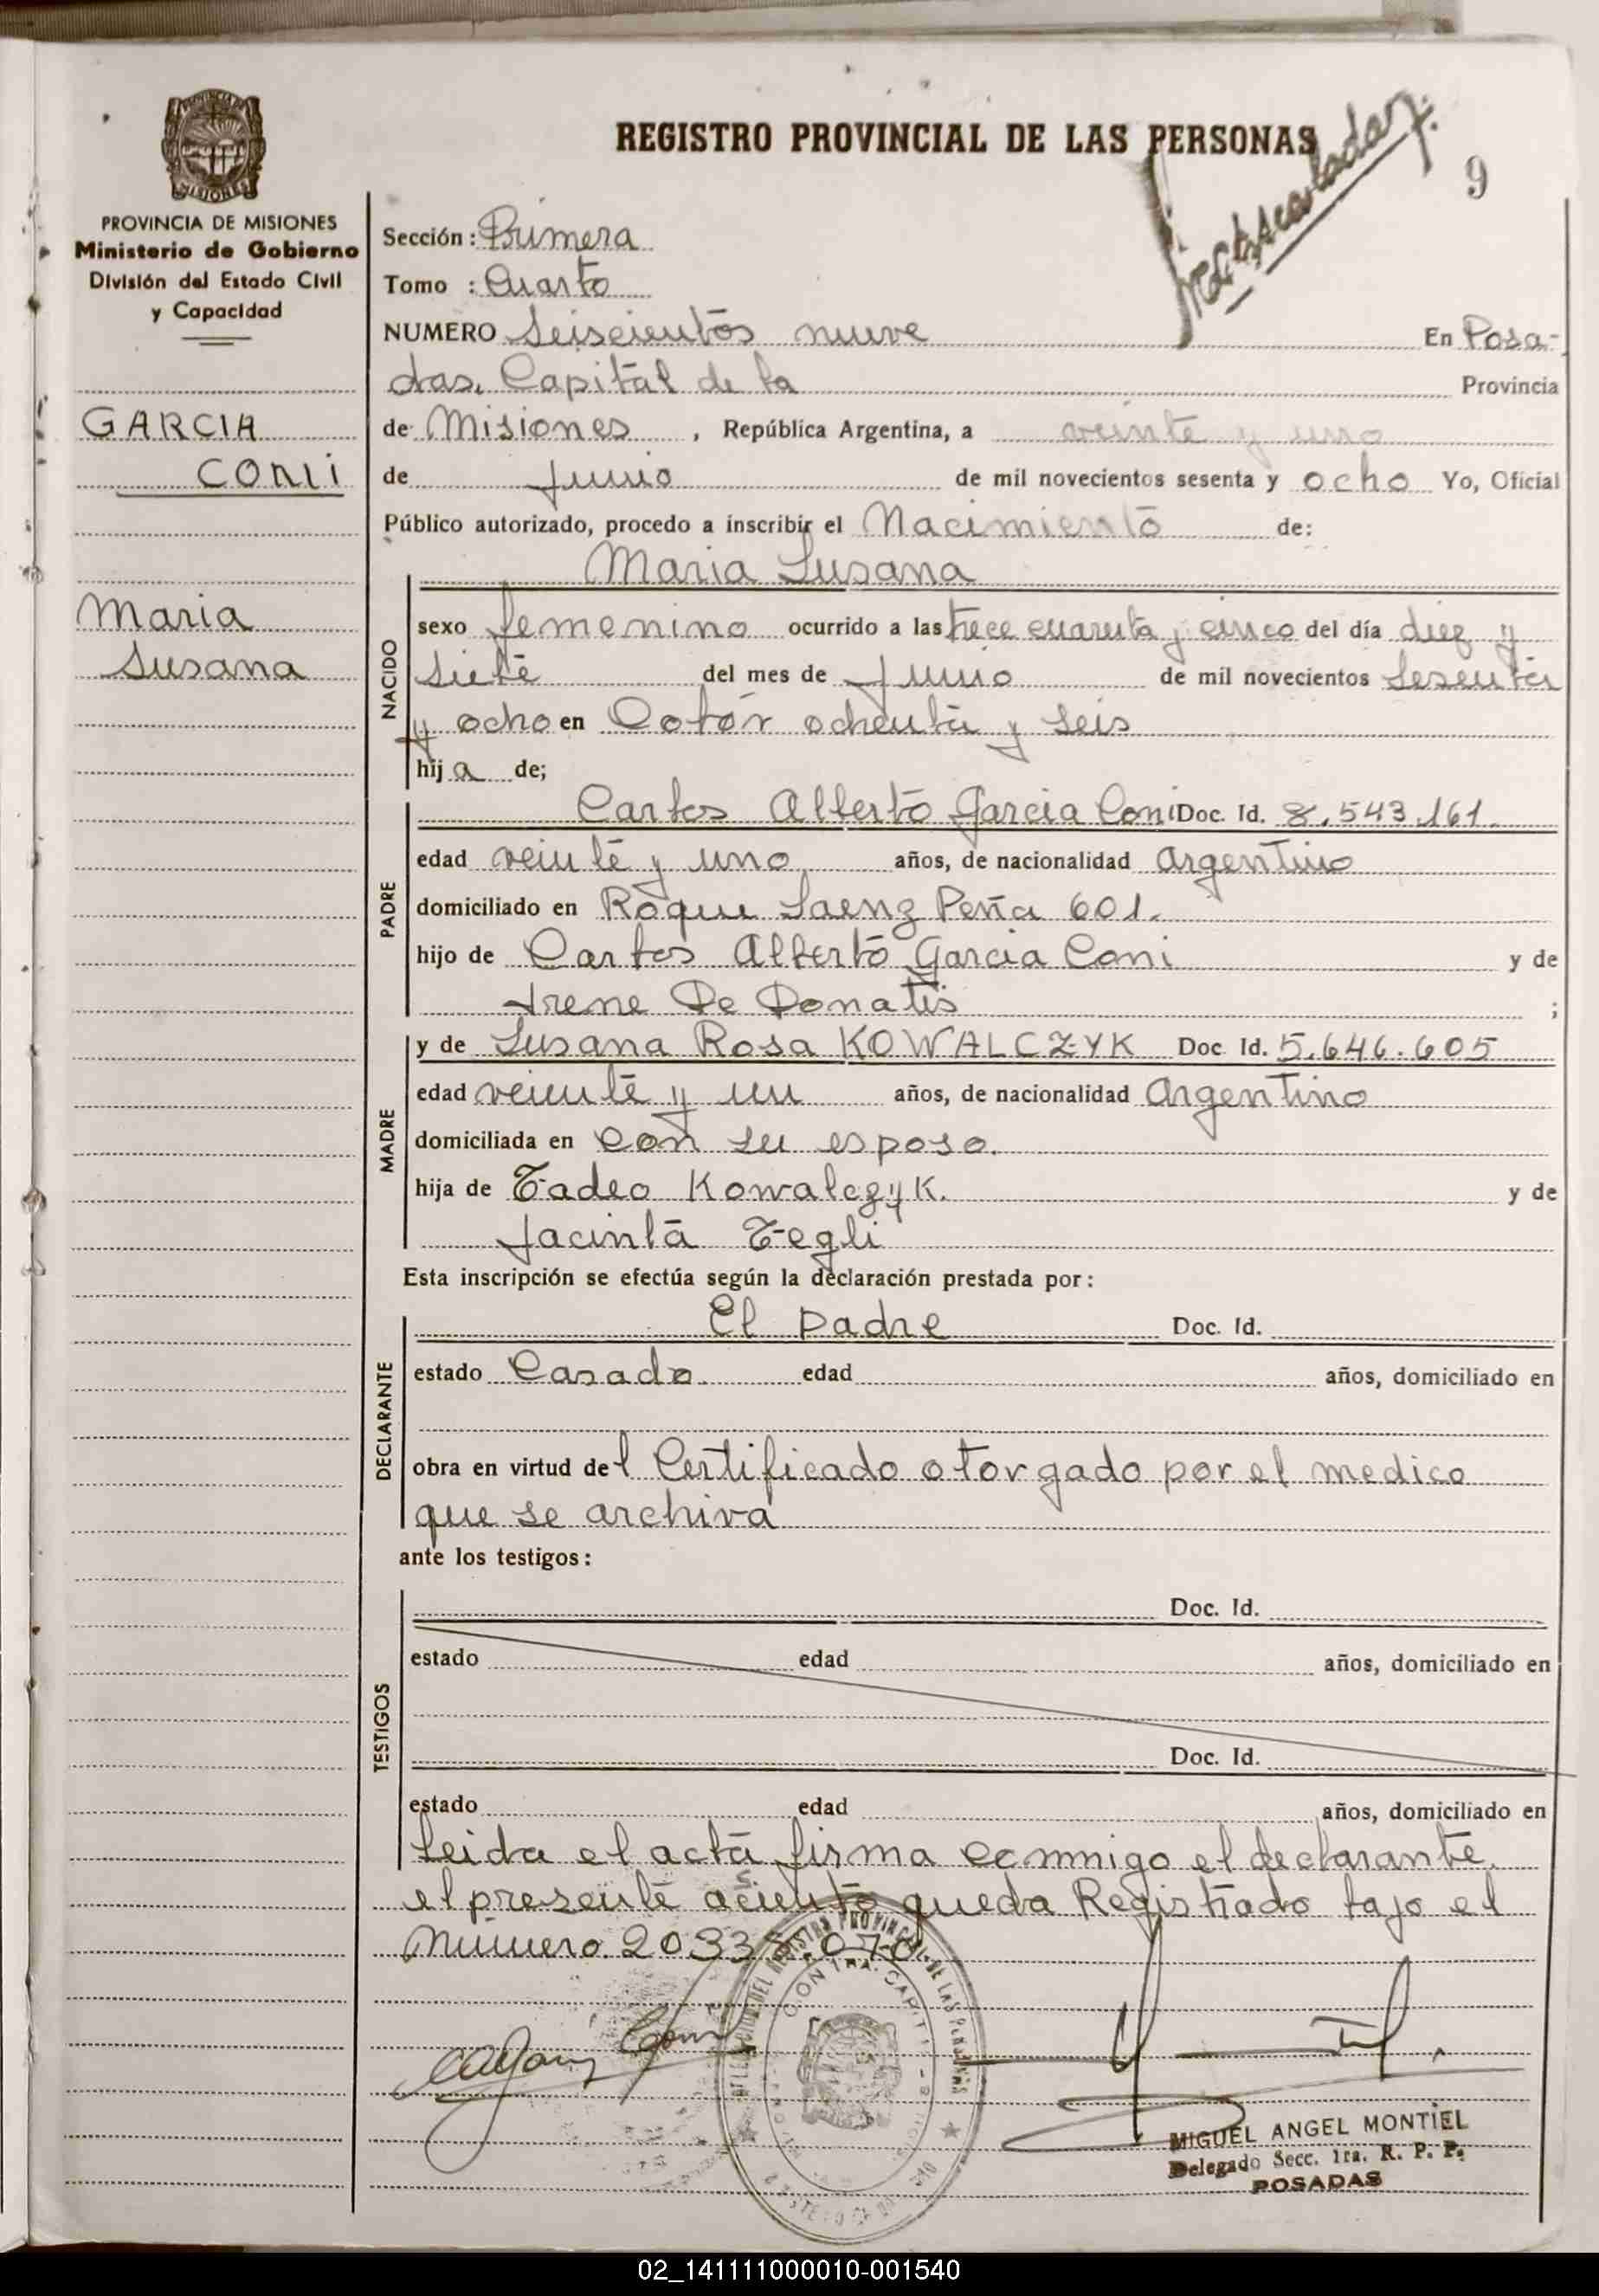 REGISTRO PROVINCIAL DE LAS PERSONAS
9
PROVINCIA DE MISIONES
Ministerio de Gobierno
División del Estado Civil
y Capacidad
GARCIA
CONI
Maria
Susana
Sección: Primera
Tomo : Cuarto
NUMERO Seiscientos nueve En Posa-
das, Capital de la Provincia
de Misiones, República Argentina, a veinte y uno
de Junio de mil novecientos sesenta y ocho Yo, Oficial
Público autorizado, procedo a inscribir el Nacimiento de:
NACIDO
Maria Susana
sexo femenino ocurrido a las trece cuarenta y cinco del día diez y
siete del mes de Junio de mil novecientos Sesenta
y ocho en Cotár ochenta y seis
hija de;
PADRE
Carlos Alberto Garcia Coni Doc. Id. 8.543.161.
edad veinte y uno años, de nacionalidad Argentino
domiciliado en Roque Saenz Peña 601.
hijo de Carlos Alberto Garcia Coni y de
Irene De Donatis ;
MADRE
y de Susana Rosa KOWALCZYK Doc Id. 5.646.605
edad veinte y un años, de nacionalidad Argentino
domiciliada en con su esposo.
hija de Tadeo Kowalczyk. y de
Jacinta Tegli
Esta inscripción se efectúa según la declaración prestada por:
DECLARANTE
El padre Doc. Id.
estado Casado edad años, domiciliado en
obra en virtud del Certificado otorgado por el medico
que se archiva
ante los testigos:
TESTIGOS
Doc. Id.
estado edad años, domiciliado en
Doc. Id.
estado edad años, domiciliado en
Leida el acta firma conmigo el declarante,
el presente aciento queda Registrado bajo el
Número 20.338.070
MIGUEL ANGEL MONTIEL
Delegado Secc. 1ra. R. P. P.
POSADAS
02_141111000010-001540